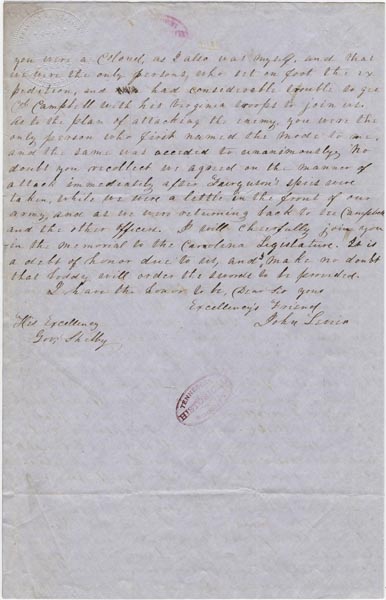 you were a Colonel, as I also was myself, and that
we were the only persons, who set on foot the ex
pedition, and had considerable trouble to get
Campbell with his Virginia troops to join us.
As to the plan of attacking the enemy, you were the
only person who first named the mode to me,
and the same was acceded to unanimously, No
doubt you recollect we agreed on the manner of
attack immediately after Ferguson's spies were
taken, while we were a little in the front of our
army, and as we were returning back to Campbell
and the other officers. I will cheerfully join you
in the memorial to the Carolina Legislature. It is
a debt of honor due to us, and I make no doubt
that body will order the swords to be provided.
I have the honor to be, Dear Sir your
Excellency's Friend
John Sevier
His Excellency
Gov. Shelby
TENNESSEE
HISTORICAL